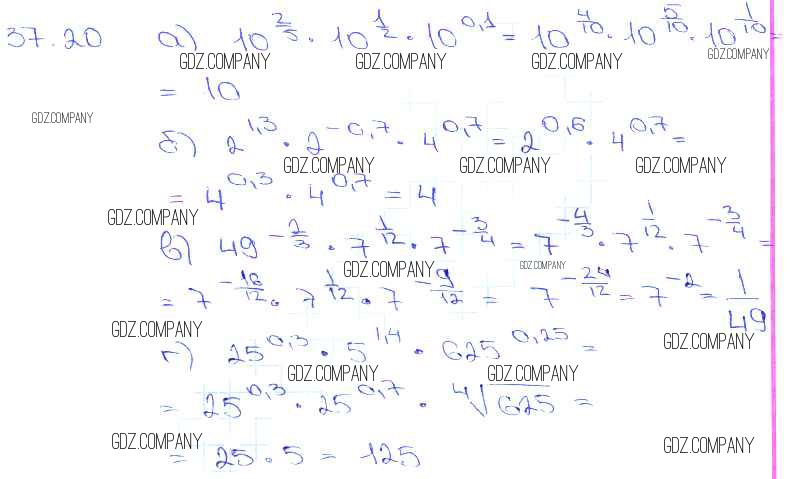 37.20 а) 10^(2/5) · 10^(1/2) · 10^0,1 = 10^(4/10) · 10^(5/10) · 10^(1/10) =
GDZ.COMPANY GDZ.COMPANY GDZ.COMPANY GDZ.COMPANY
= 10
GDZ.COMPANY
б) 2^1,3 · 2^-0,7 · 4^0,7 = 2^0,6 · 4^0,7 =
GDZ.COMPANY GDZ.COMPANY GDZ.COMPANY
= 4^0,3 · 4^0,7 = 4
GDZ.COMPANY
в) 49^(-2/3) · 7^(1/12) · 7^(-3/4) = 7^(-4/3) · 7^(1/12) · 7^(-3/4) =
GDZ.COMPANY GDZ.COMPANY
= 7^(-16/12) · 7^(1/12) · 7^(-9/12) = 7^(-24/12) = 7^-2 = 1/49
GDZ.COMPANY GDZ.COMPANY
г) 25^0,3 · 5^1,4 · 625^0,25 =
GDZ.COMPANY GDZ.COMPANY
= 25^0,3 · 25^0,7 · ⁴√625 =
GDZ.COMPANY GDZ.COMPANY
= 25 · 5 = 125